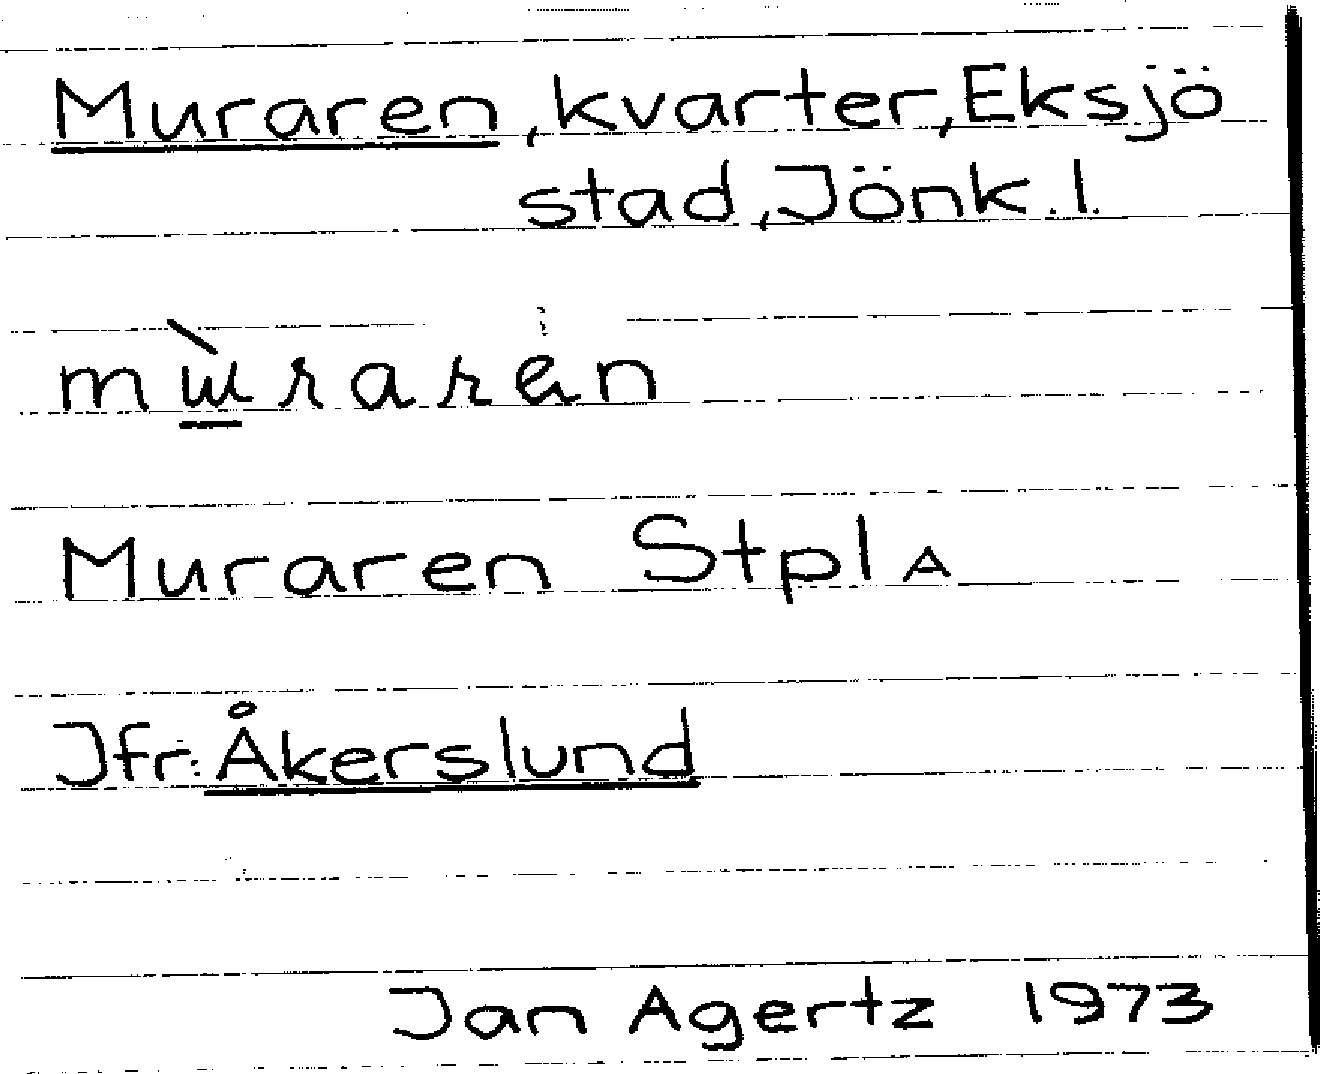 Muraren, kvarter, Eksjö
stad, Jönk. l.
Muraren Stpl A
Jfr: Åkerslund
Jan Agertz 1973